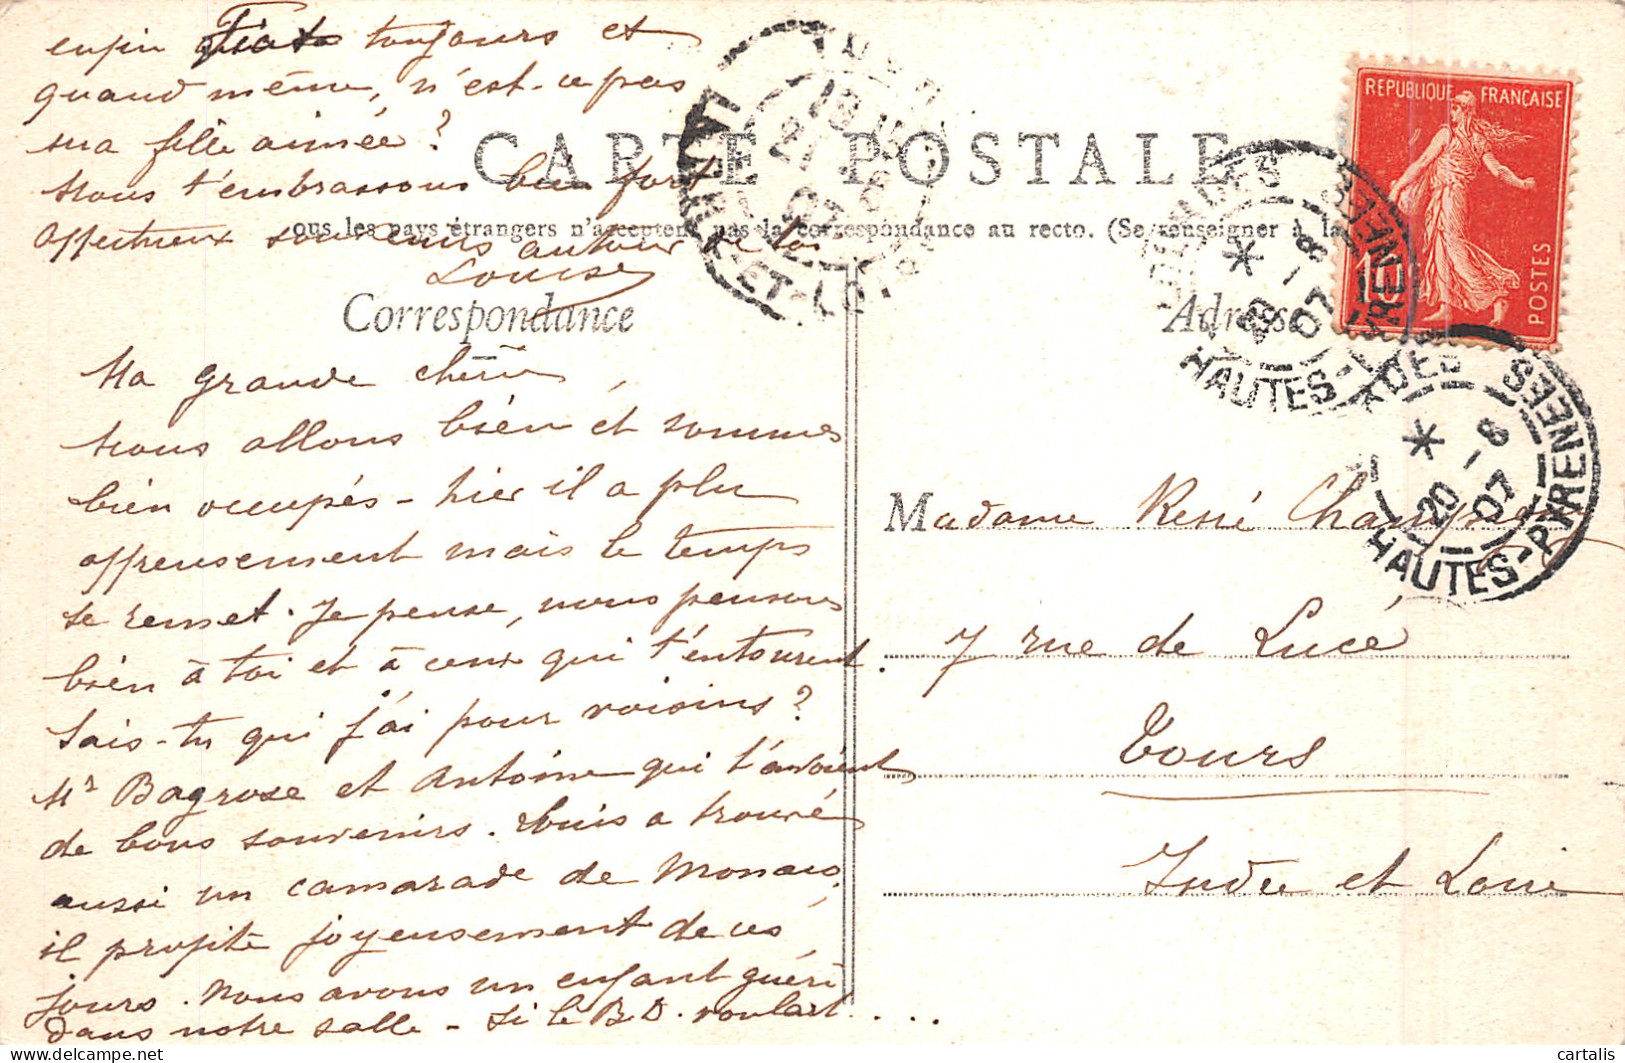 enfin Fiat toujours et
quand même, n'est-ce pas
ma fille aimée ?
Nous t'embrassons bien fort
Affectueux souvenirs autour de toi
Louise
CARTE POSTALE
ous les pays étrangers n'acceptent pas la correspondance au recto. (Se renseigner à la
Correspondance
Adresse
Ma grande chérie,
Nous allons bien et sommes
bien occupés - hier il a plu
affreusement mais le temps
se remet. Je pense, nous pensons
bien à toi et à ceux qui t'entourent.
Sais-tu qui j'ai pour voisins ?
Mr Bagrose et Antoine qui t'avoient
de bons souvenirs. Louis a trouvé
aussi un camarade de Monaco,
il profite joyeusement de ces
jours. Nous avons un enfant guéri
dans notre salle - Si le B.D. voulait....
Madame René
7 rue de Lucé
Tours
Indre et Loire
REPUBLIQUE FRANÇAISE
10
POSTES
HAUTES-PYRENEES
20 -8 07
HAUTES-PYRENEES
20 -8 07
21
07
ET-LOIRE
cartalis